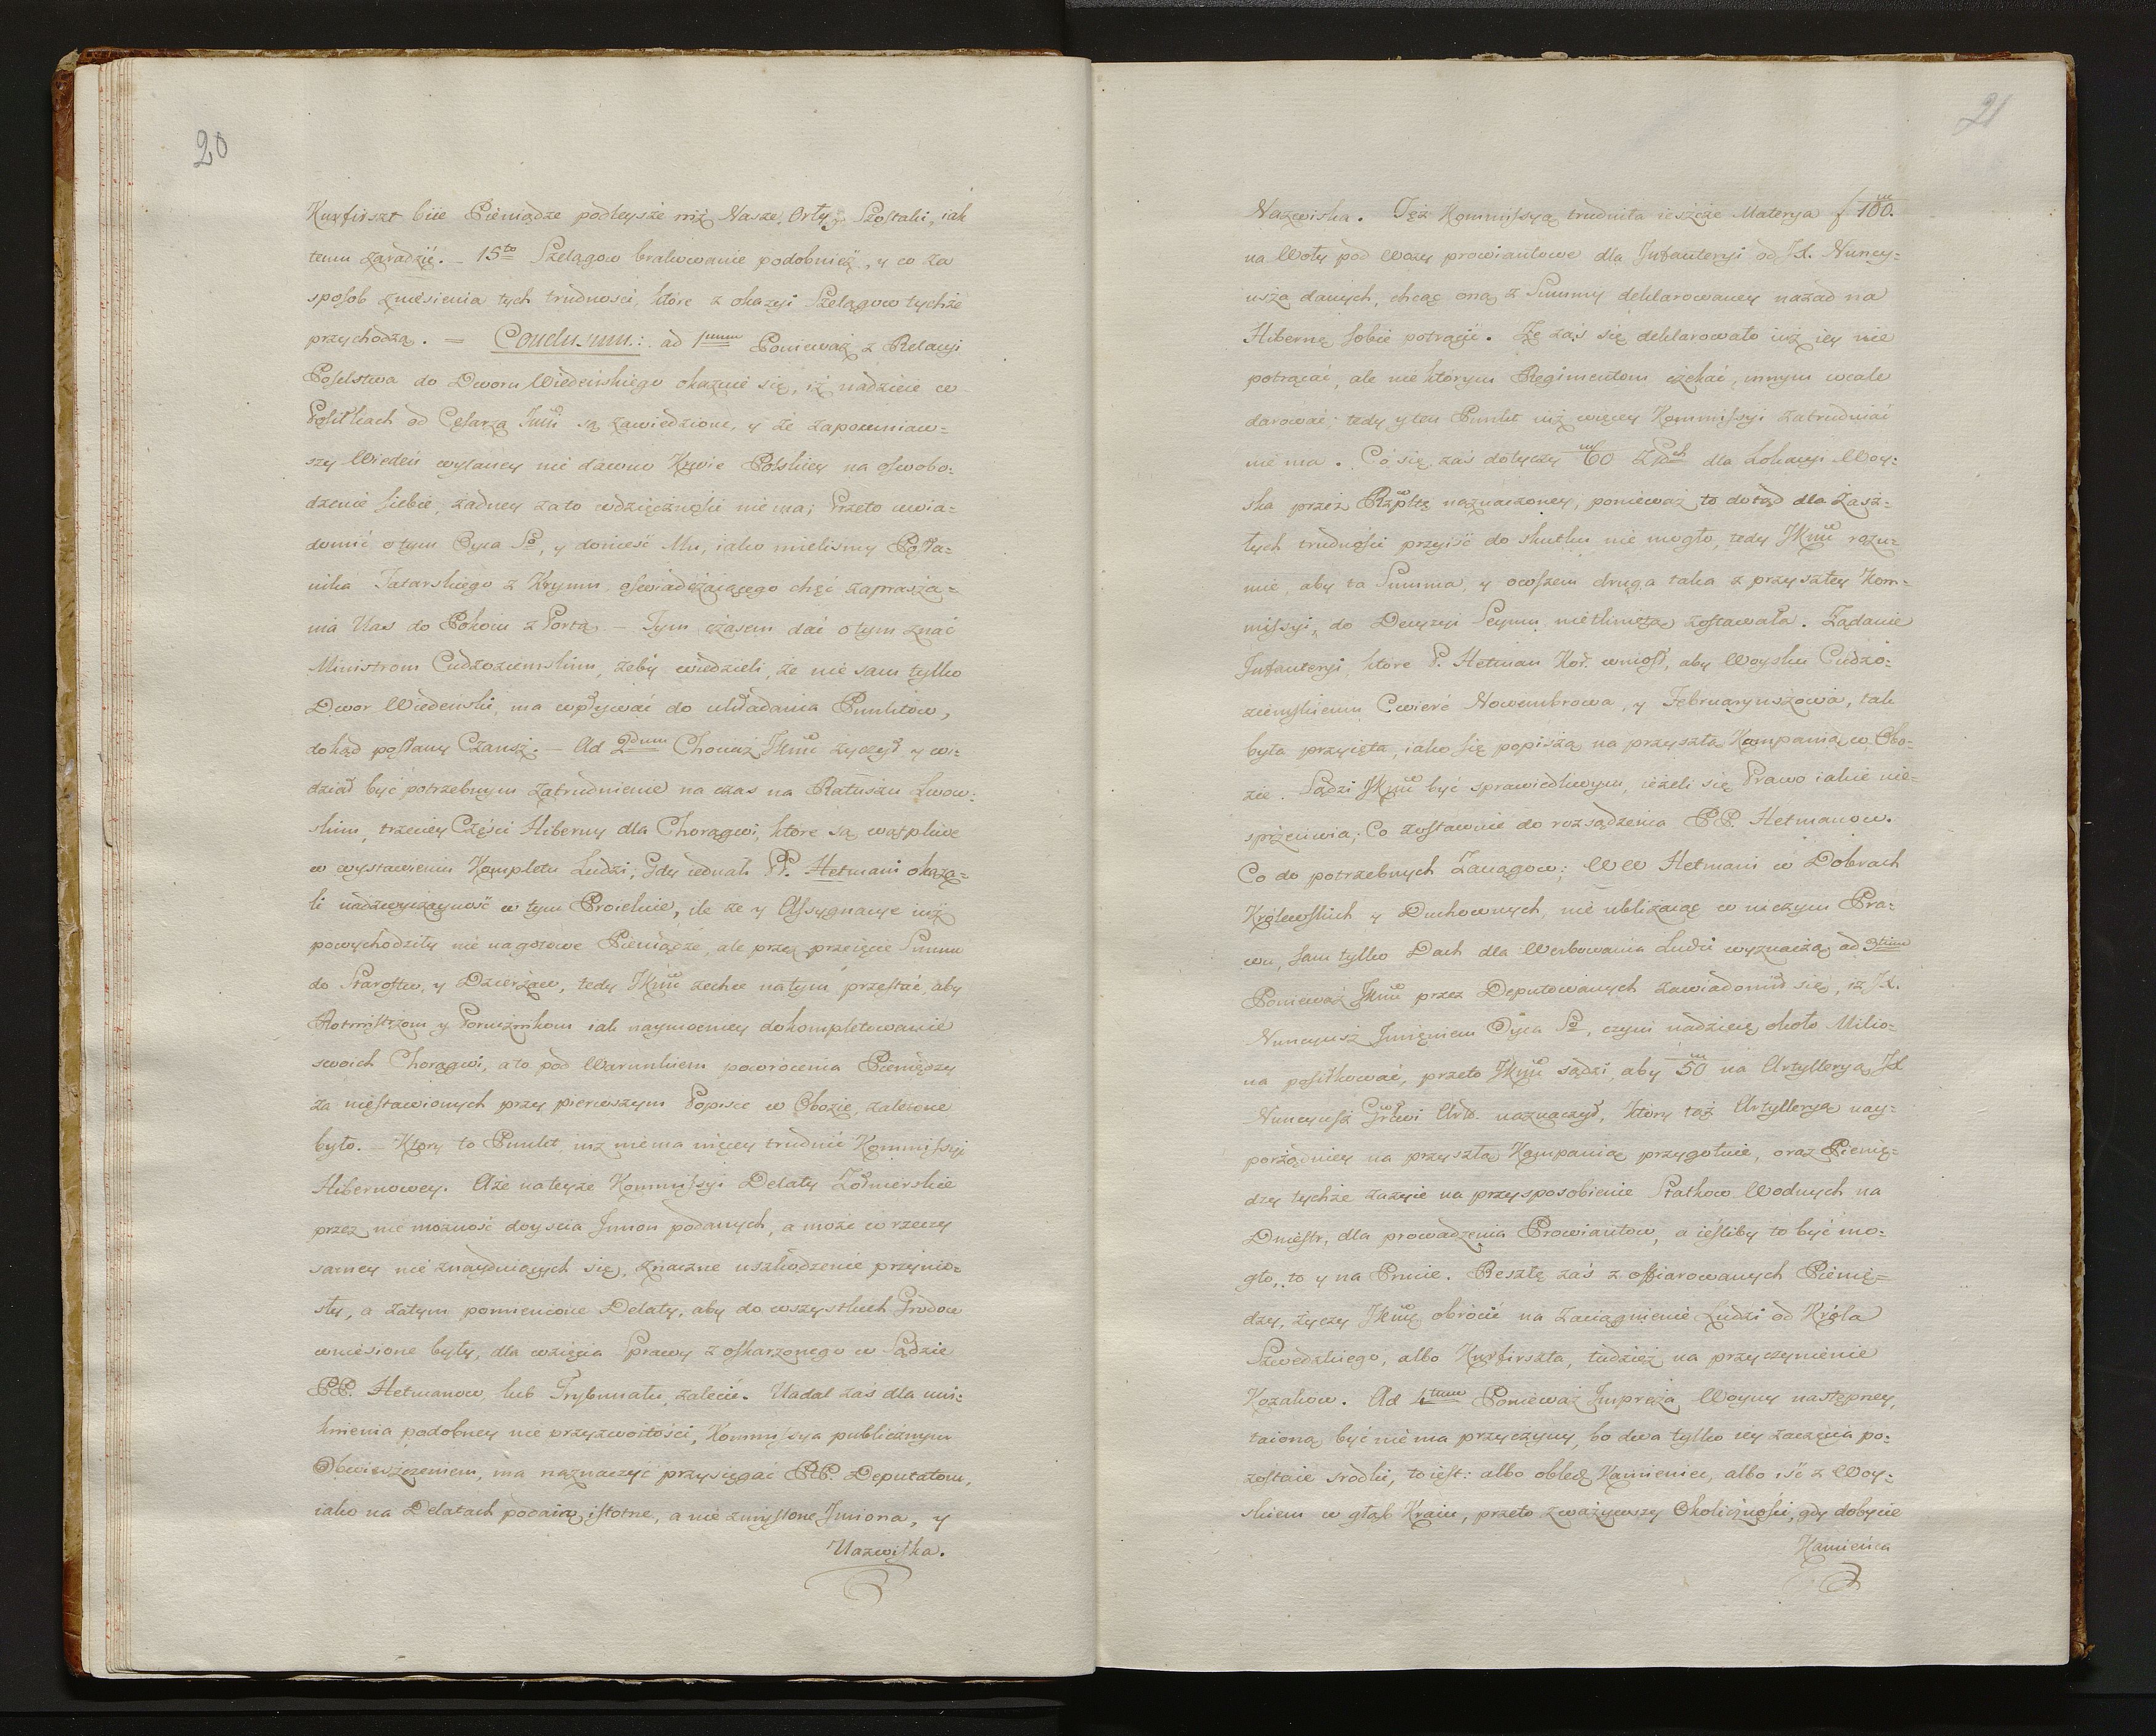 20
Kurfirszt biie Pieniądze podleysze niż Nasze, Orły y Szostaki, iak
temu zaradzić. _ 15to Szelągow brakowanie podobnież, y co za
sposob zniesienia tych trudnosci, które z okazyi Szelągow tychże
przychodzą. = Conclusum: ad 1mum Ponieważ z Relacyi
Poselstwa do Dworu Wiedeńskiego okazuie się, iż nadzieie w
Posiłkach od Cesarza Jmći są zawiedzione, y że zapomniaw=
szy Wiedeń wylaney nie dawno Krwie Polskiey na oswobo=
dzenie siebie, żadney za to wdzięcznośći nie ma; Przeto uwia=
domić o tym Oyca So, y donieść Mu, iako mielismy Posła=
nika Tatarskiego z Krymu, oswiadczaiącego chęć zaprasza=
nia Nas do Pokoiu z Portą. _ Tym czasem dać o tym znać
Ministrom Cudzoziemskim, żeby wiedzieli, że nie sam tylko
Dwor Wiedeński, ma wpływać do układania Punktów,
dokąd posłany Czausz. _ Ad 2dum Chociaż JKmć życzył y wi=
dział być potrzebnym zatrudnienie na czas na Ratuszu Lwow=
skim, trzeciey Częsci Hiberny dla Chorągwi, które są wątpliwe
w wystawieniu Kompletu Ludzi; Gdy iednak PP. Hetmani okaza=
li nadzwyczayność w tym Procelnie, ile że y Assygnacye iuż
powychodziły nie na gotowe Pieniądze, ale przez przeięcie Summ
do Starostw, y Dzierżaw, tedy JKmć zechce na tym przestać, aby
Rotmistrzom y Porucznikom iak naymocniey dokompletowanie
swoich Chorągwi, a to pod Warunkiem powrócenia Pieniędzy
za niestawionych przy pierwszym Popisie w Obozie, zalecone
było. _ Ktory to Punkt, iuz nie ma więcey trudnić Kommissyi
Hibernowey. Aże na teyże Kommissyi Delaty Żołnierskie
przez nie możność doyscia Imion podanych, a może w rzeczy
samey nie znayduiących się, znaczne uszkodzenie przynio=
sły, a zatym pomienione Delaty, aby do wszystkich Grodow
wniesione były, dla wzięcia Sprawy z oskarżonego w Sądzie
PP. Hetmanow, lub Trybunału, zalecić. Nadal zaś dla uni=
knienia podobney nie przyzwoitości, Kommissya publicznym
Obwieszczeniem, ma naznaczyć przysięgać PP. Deputatom,
iako na Delatach podaią istotne, a nie zmyslone Jmiona, y
Nazwiska.
21
Nazwiska. Też Kommissyą trudniła ieszcze Materya f 100m
na Woły pod Wozy prowiantowe dla Infanteryi od JX. Nuncy=
usza danych, chcąc oną z Summy deklarowaney nazad na
Hibernę sobie potrącić. Że zaś się deklarowało iuż iey nie
potrącać, ale niektorym Regimentom czekać, innym wcale
darować; tedy y ten Punkt iuż więcey Kommissyi zatrudniać
nie ma. Co się zaś dotyczy 60m Złch dla Lokacyi Woy=
ska przez Rzpltę naznaczoney, ponieważ to dotąd dla Zasz=
łych trudności przyiść do skutku nie mogło, tedy JKmć rozu=
mie, aby ta Summa, y owszem druga taka z przyszłey Kom=
missyi, do Decyzyi Seymu nietknięta zostawała. Żądanie
Infanteryi, które P. Hetman Kor. wniosł, aby Woysku Cudzo=
ziemskiemu Cwierć Nowembrowa, y Februaryuszowa, tak
była przyięta, iako się popiszą na przyszłą Kampanią w Obo=
zie. Sądzi JKmć być sprawiedliwym, ieżeli się Prawo iakie nie
sprzeciwia; Co zostawuie do rozsądzenia PP. Hetmanow.
Co do potrzebnych Zaciągow; WW Hetmani w Dobrach
Królewskich y Duchownych, nie ubliżaiąc w niczym Pra=
wu, sam tylko Dach dla Werbowania Ludzi wyznaczą ad 3tium
Ponieważ JKmć przez Deputowanych zawiadomił się, iż JX.
Nuncyusz Jmieniem Oyca So, czyni nadzieię około Milio=
na posiłkować, przeto JKmć sądzi, aby 50m na Artylleryą JX
Nuncyusz Grłwi Artł. naznaczył, ktory też Artylleryą nay=
porządniey na przyszłą Kampanią przygotuie, oraz Pienię=
dzy tychże zażyie na przysposobienie Statkow Wodnych na
Dniestr, dla prowadzenia Prowiantow, a ieśliby to być mo=
gło, to y na Prucie. Resztę zaś z offiarowanych Pienię=
dzy, życzy JKmć obrócić na Zaciągnienie Ludzi od Króla
Szwedzkiego, albo Kurfirszta, tudzież na przyczynienie
Kozakow. Ad 4tum Ponieważ Impreza Woyny następney,
taioną być nie ma przyczyny, bo dwa tylko iey zaczęcia po=
zostaie srodki, to iest: albo obledz Kamieniec, albo iść z Woy=
skiem w głąb Kraiu, przeto zważywszy Okoliczności, gdy dobycie
Kamieńca